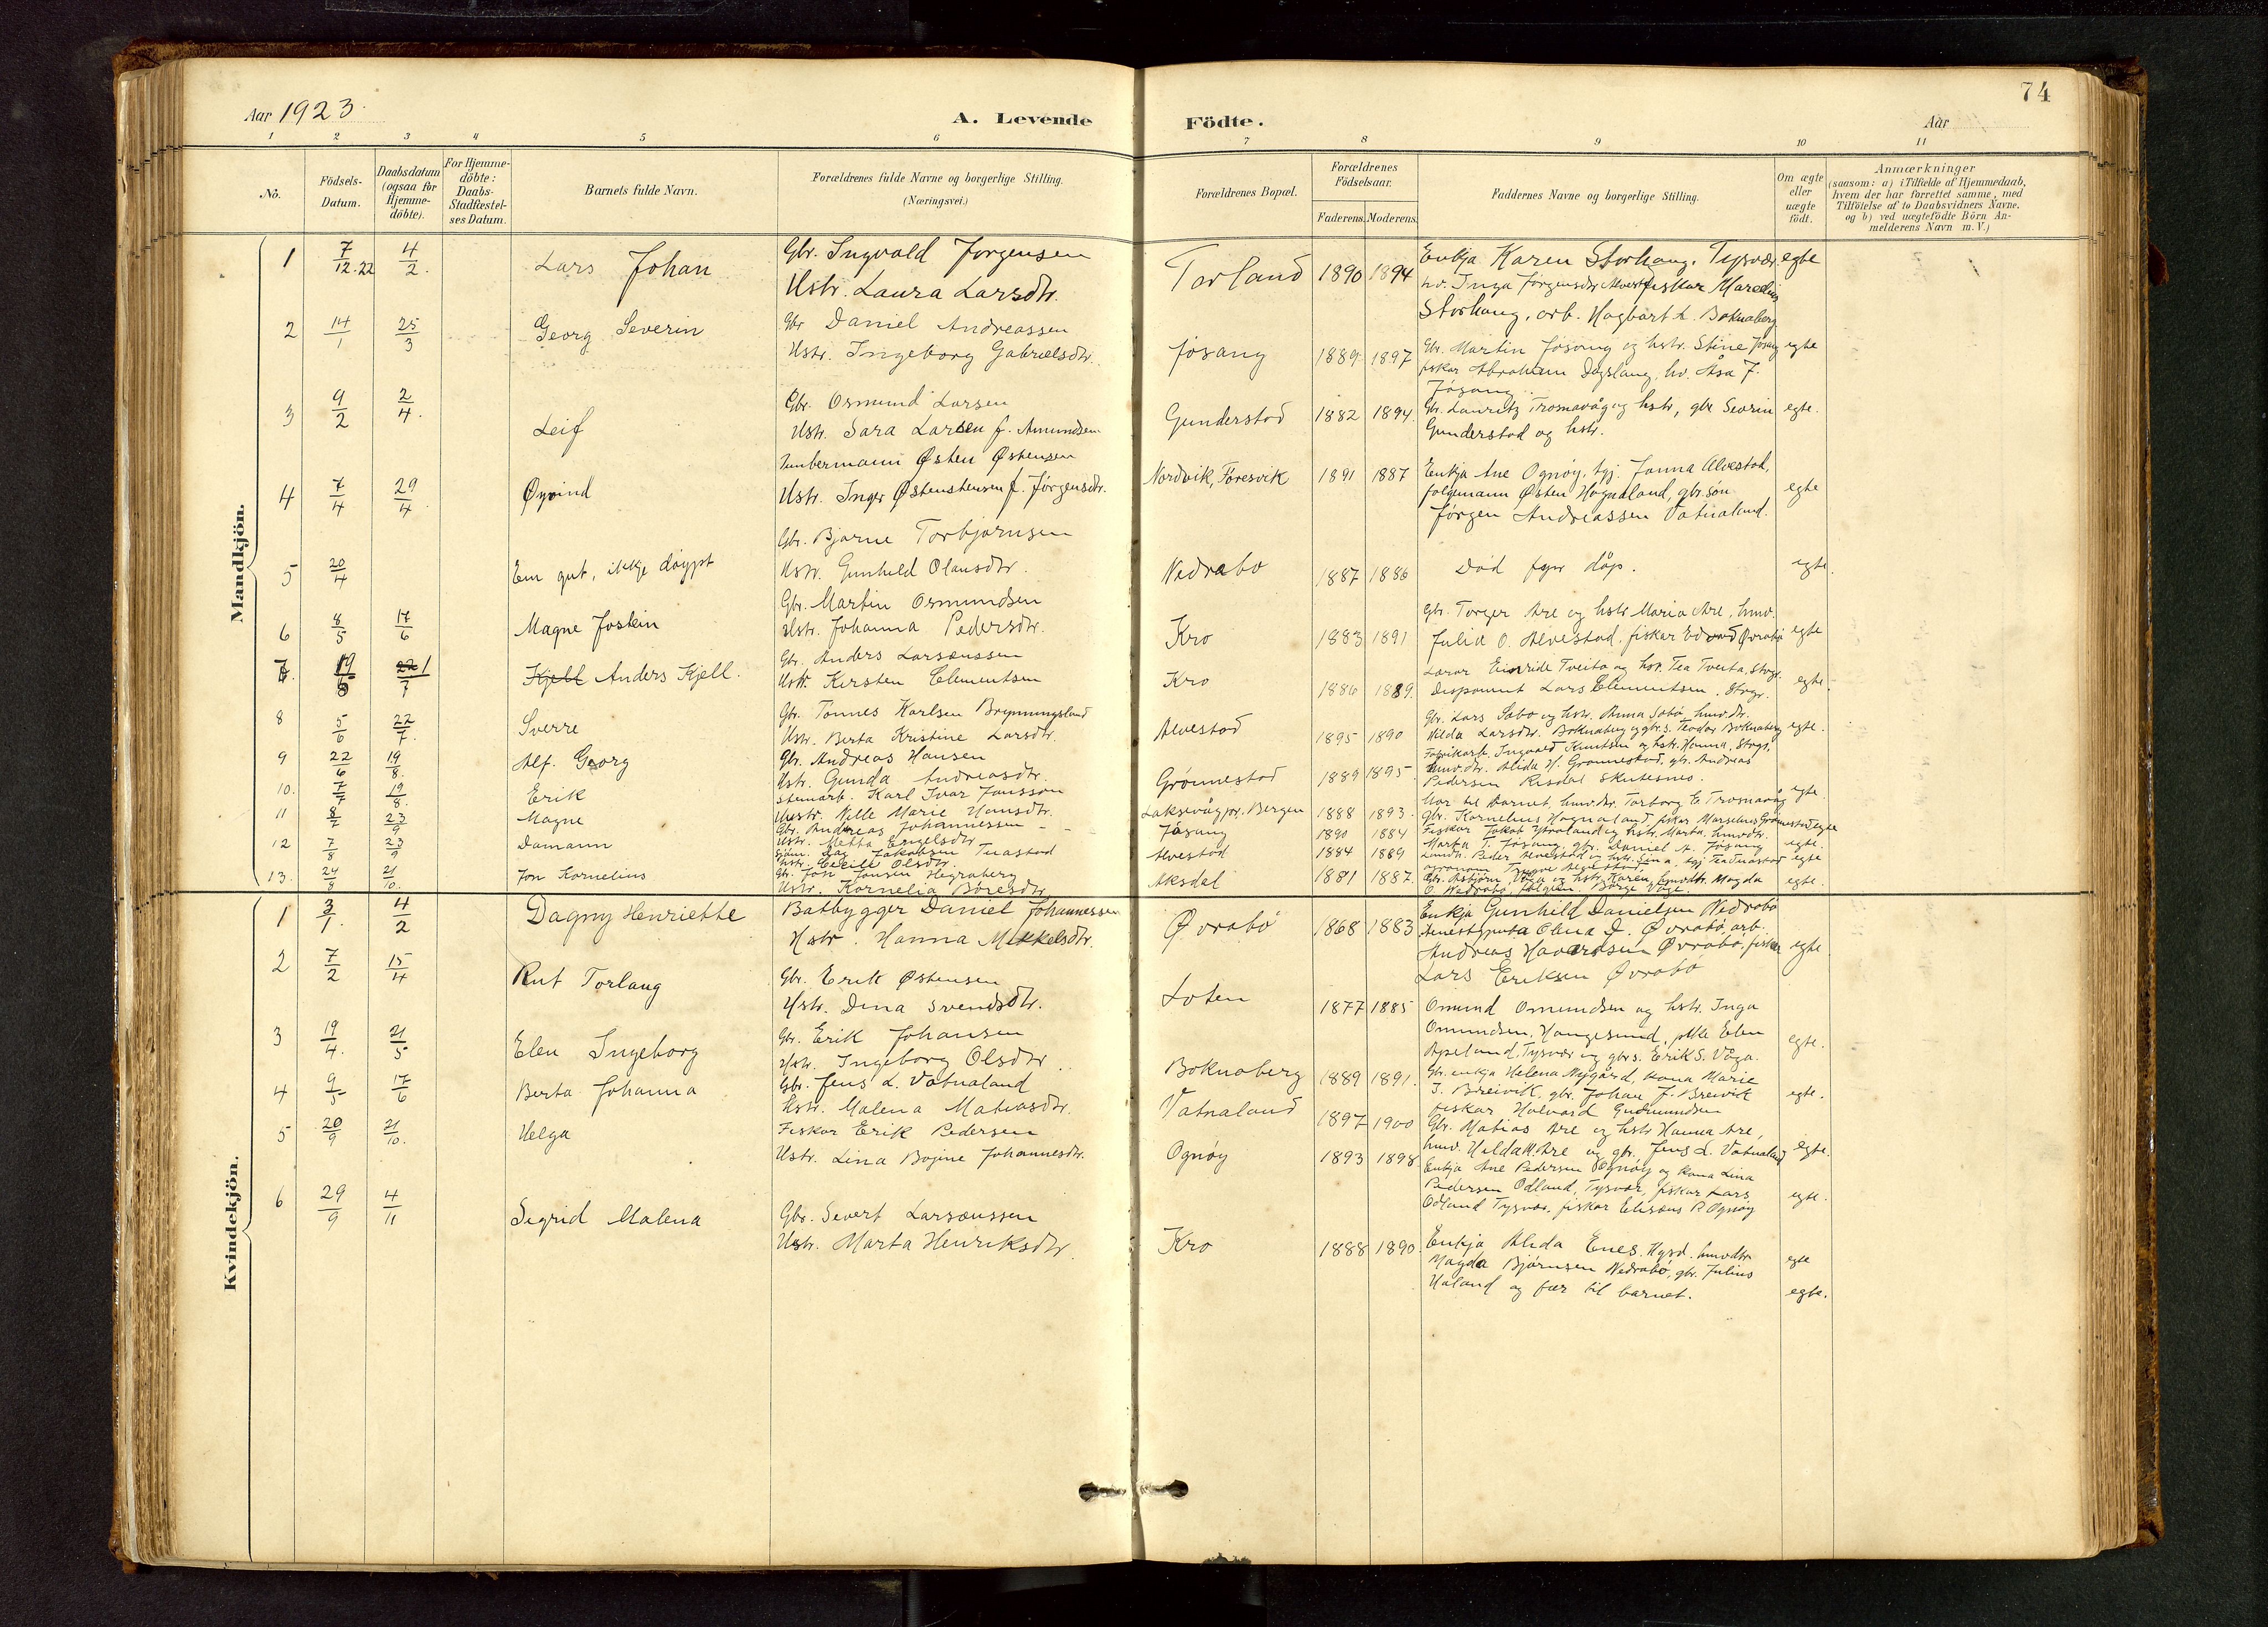 74
Aar 1923.
A. Levende Födte.
Aar
1 2 3 4 5 6 7 8 9 10 11
No.
Födsels-Datum.
Daabsdatum (ogsaa for Hjemme-döbte).
For Hjemme-döbte: Daabs-Stadfæstel-ses Datum.
Barnets fulde Navn.
Forældrenes fulde Navne og borgerlige Stilling.
(Næringsvei.)
Forældrenes Bopæl.
Forældrenes Födselsaar.
Faderens. Moderens.
Faddernes Navne og borgerlige Stilling.
Om ægte eller uægte födt.
Anmærkninger
(saasom: a) i Tilfælde af Hjemmedaab,
hvem der har forrettet samme, med
Tilföielse af to Daabsvidners Navne,
og b) ved uægtefödte Börn An-
melderens Navn m. V.)
Mandkjön.
1 7/12.22 4/2. Lars Johan
Gbr. Ingvald Jørgensen
Hstr. Laura Larsdtr.
Torland 1890 1894
Enkja Karen Storhaug, Tysvær
hv. Inga Jørgensdtr Alvestad fiskar Marelius
Storhaug, arb. Hagbart L. Boknaberg
egte
2 14/1 25/3 Georg Severin
Gbr Daniel Andreassen
Hstr. Ingeborg Gabrielsdtr.
Jøsang 1889 1897
Gbr. Martin Jøsang og hstr. Stine Jøsang
fiskar Abraham Dagsland, hv. Åsa J.
Jøsang.
egte
3 9/2 2/4. Leif
Gbr. Osmund Larsen
Hstr. Sara Larsen f. Amundsen
Gunderstad 1882 1894.
Gbr. Lauritz Trosnavåg og hstr, gbr Sevrin
Gunderstad og hstr.
egte.
4 7/4 29/4 Øyvind
Tømbermann Østen Østensen
Hstr. Inger Østenstensen f. Jørgensdtr.
Nordvik, Føresvik 1891 1887
Enkja Ane Ognøy, tgj. Janna Alvestad,
folgemann Østen Hognaland, gbr.søn
Jørgen Andreassen Vatnaland.
egte
5 20/4 Ein gut, ikkje døypt
Gbr. Bjarne Torbjørnsen
Hstr. Gunhild Olausdtr.
Nedrabø 1887 1886
Død fyrr dåp.
egte.
6 8/5 17/6 Magne Jostein
Gbr. Martin Osmundsen
Hstr. Johanna Pedersdtr.
Kro 1883 1891
Gbr. Torger Are og hstr Maria Are, hmv.
Julia O. Alvestad, fiskar Edvard Øvrabø
egte
7. 19/6 1/7 Kjell Anders Kjell.
Gbr. Anders Larsænssen
Hstr. Kirsten Clementsen
Kro 1886 1889.
Lærar Einride Tveita og hstr. Tea Tveita, Stvgr.
Disponent Lars Clementsen. Stvgr.
egte.
8 5/6 22/7. Sverre
Gbr. Tønnes Karlsen Brynningsland
Hstr. Berta Kristine Larsdtr.
Alvestad 1895 1890
Gbr. Lars Sabø og hstr. Anna Sabø hmv.dtr.
Hilda Larsdtr. Boknaberg og gbr.s. Teodor Boknaberg
egte.
9 22/6 19/8. Alf. Georg
Gbr. Andreas Hansen
Hstr. Gunda Andreasdtr.
Grønnestad 1889 1895
Fabrikarb. Ingvald Knutsen og hstr. Hanna, Stvgr,
hmv.dtr. Alida H. Grønnestad, gbr. Andreas
Pedersen Risdal Skutesnes.
egte.
10. 7/7 19/8. Erik
Steinarb. Karl Ivar Jansson
Hustr. Nille Marie Hansdtr.
Laksevåg pr. Bergen 1888 1893.
Mor til barnet, hmv.dtr. Torborg E. Trosnavåg
gbr. Kornelius Hognaland, fiskar Marselius Grønnestad
egte
11 8/7 23/9 Magne
Gbr. Andreas Johannessen
Hstr. Metta Engelsdtr
Jøsang 1890 1884
Fiskar Jakob Ytraland og hstr. Marta, hmvdtr.
Marta T. Jøsang, gbr. Daniel A. Jøsang
egte.
12 7/8 23/9 Damann
Sjøm. Dag Jakobsen Tuastad
Hstr. Cecilie Olsdtr.
Alvestad 1884 1889
Landh. Peder Alvestad og hstr. Lina, tgj. Tea Tuastad
egte
13. 24/8 21/10. Jon Kornelius
Gbr. Jon Jonsen Hegraberg
Hstr. Kornelia Børesdtr.
Aksdal 1881 1887.
Gbr. Asbjørn Våga og hstr. Karen, hmvdtr. Magda
O. Nedrabø, Børge Våge.
egte.
Kvindekjön.
1 3/1. 4/2 Dagny Henriette
Båtbygger Daniel Johannessen
Hstr. Hanna Mikkelsdtr.
Øvrabø 1868 1883
Enkja Gunhild Danielsen Nedrabø
tenestgjenta Olena D. Øvrabø, arb.
Andreas Haversen Øvrabø, fiskar
Lars Eriksen Øvrabø
egte
2 7/2 15/4 Rut Torlaug
Gbr. Erik Østensen
Hstr. Dina Svendsdtr.
Loten 1877 1885
Omund Omundsen og hstr. Inga
Omundsen, Haugesund, pike Elen
Apeland, Tysvær og gbr.s. Erik S. Våga.
egte.
3 19/4. 21/5 Elen Ingeborg
Gbr. Erik Johansen
Hstr. Ingeborg Olsdtr
Boknaberg 1889 1891.
Gbr. enkja Helena Nygård, kona Marie
J. Breivik, gbr. Johan J. Breivik
fiskar Halvard Gudmundsen
egte.
4 9/5 17/6 Berta Johanna
Gbr. Jens L. Vatnaland
Hstr. Malena Matiasdtr.
Vatnaland 1897 1900
Gbr. Matias Are og hstr Hanna Are,
hmv. Hilda M. Are og gbr. Jens L. Vatnaland
egte.
5 20/9 21/10. Helga
Fiskar Erik Pedersen
Hstr. Lina Bogine Johannesdtr.
Ognøy 1893 1898
Enkja Ane Pedersen Ognøy og kona Lina
Pedersen Odland, Tysvær, fiskar Lars
Odland Tysvær, fiskar Elisæus P. Ognøy
egte.
6 29/9 4/11 Sigrid Malena
Gbr. Severt Larsænssen
Hstr. Marta Henriksdtr.
Kro 1888 1890.
Enkja Alida Enes, Hgsd. hmvdtr
Magda Bjørnsen Nedrabø, gbr. Julius
Haland og far til barnet.
egte
egte.